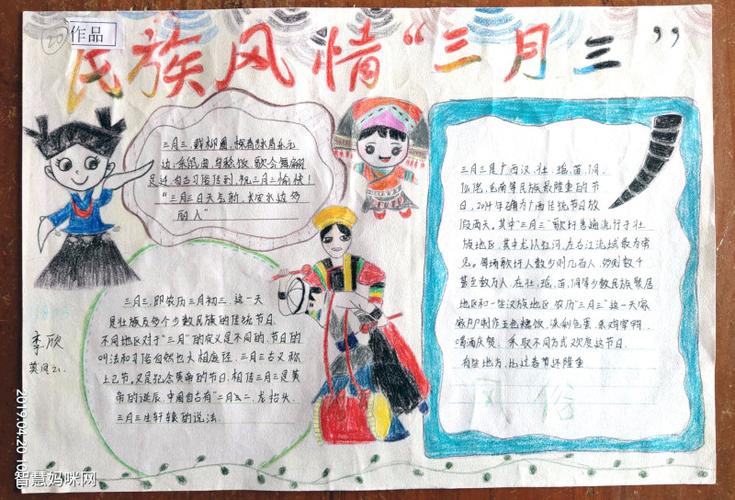 20
作品
民族风情“三月三”
三月三,
边
足迹,自古习俗传到,祝三月三愉快!
“三月三日天气新,长安水边多
丽人”
三月三,即农历三月初三,这一天
是壮族及多个少数民族的传统节日.
不同地区对于“三月”的定义是不同的,节日的
叫法和习俗自然也大相庭径.三月三古又称
上己节.又是纪念黄帝的节日,相传三月三是黄
帝的诞辰.中国自古有“二月二,龙抬头.
三月三生轩辕的说法.
李欣
三月三是广西汉、壮、瑶、苗、侗、
仫佬、毛南等民族最隆重的节
日,2014年确为广西传统节日放
假两天.其中“三月三”歌圩普遍流行于壮
族地区,其中尤以红河、左右江流域最为常
见.每场歌圩人数少则几百人,多则数千
甚至数万人.在壮、瑶、苗、侗等少数民族聚居
地区和一些汉族地区,农历“三月三”这一天家
家户户制作五色糯饭、
喝酒庆贺.采取不同方式欢度这节日.
有些地方,比过春节还隆重
风俗
2019.04.20 10
智慧妈咪网